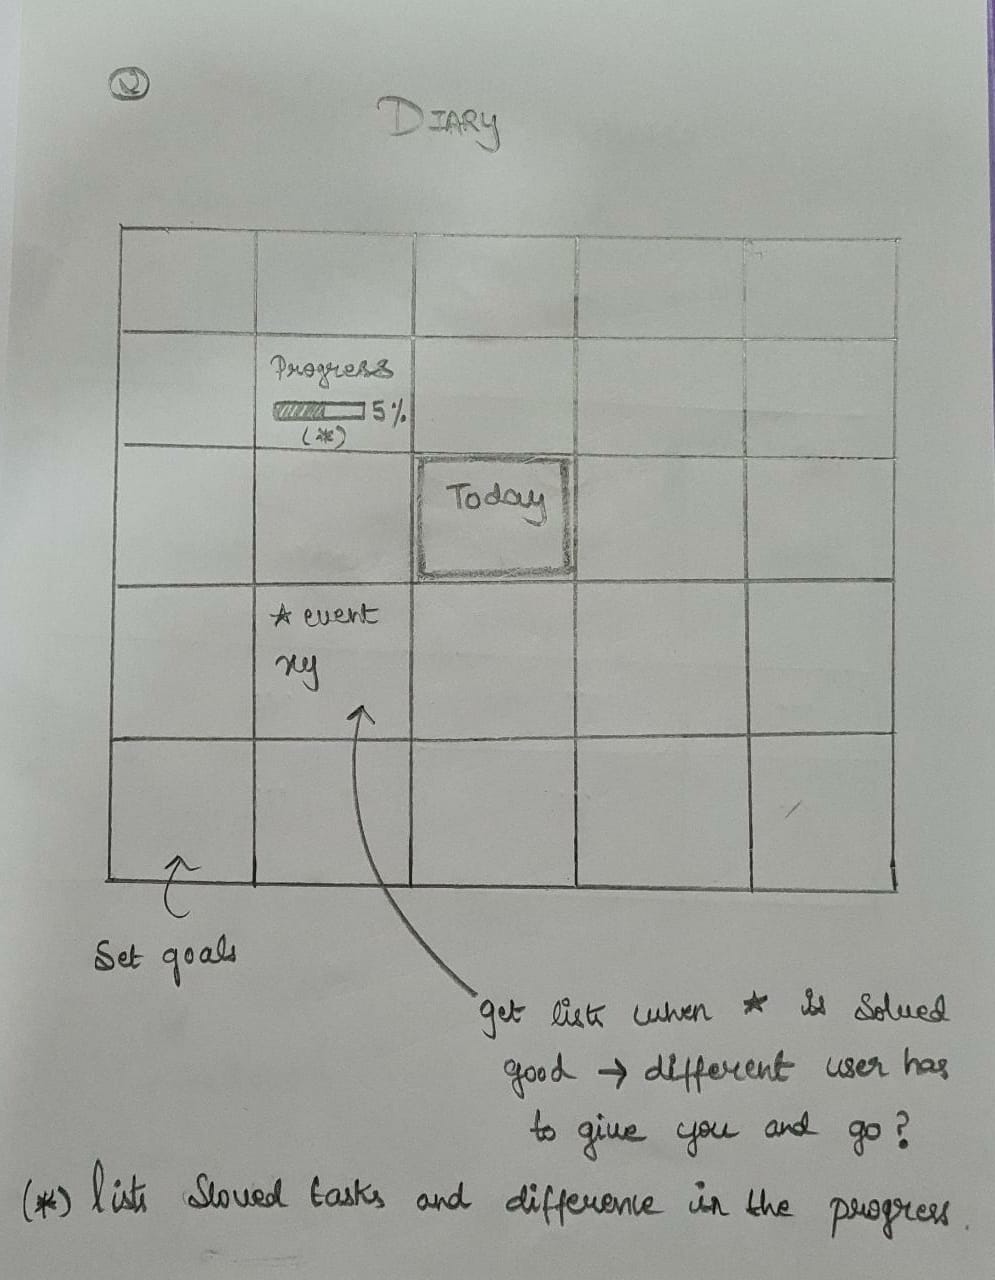 2
DIARY
Progress
5%
(*)
Today
★ event
xy
Set goals
get list when ★ is solved
good → different user has
to give you and go?
(*) list sloved tasks and difference in the progress.